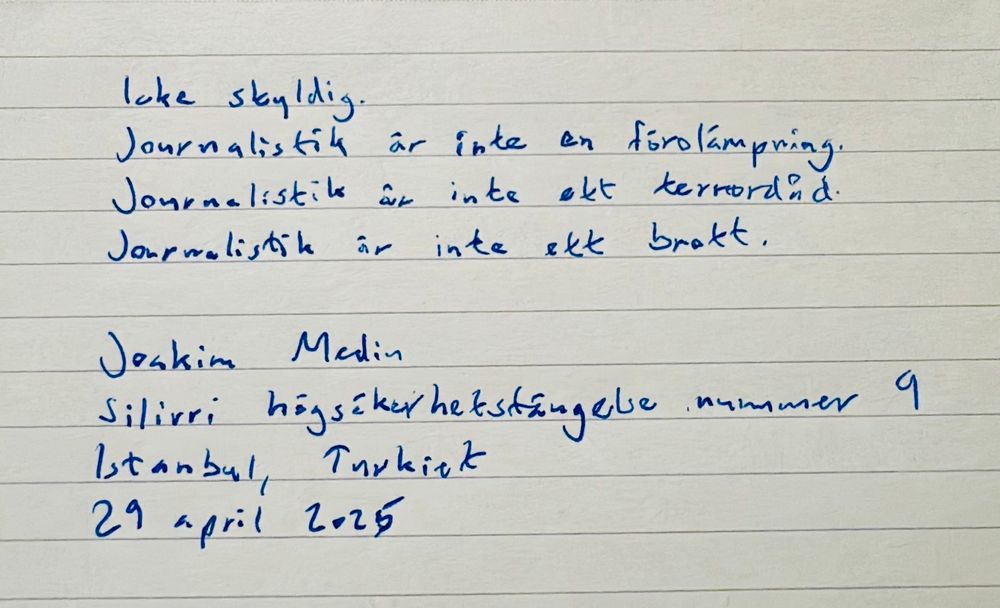 Icke skyldig.
Journalistik är inte en förolämpning.
Journalistik är inte ett terrordåd.
Journalistik är inte ett brott.
Joakim Medin
Silivri högsäkerhetsfängelse nummer 9
Istanbul, Turkiet
29 april 2025